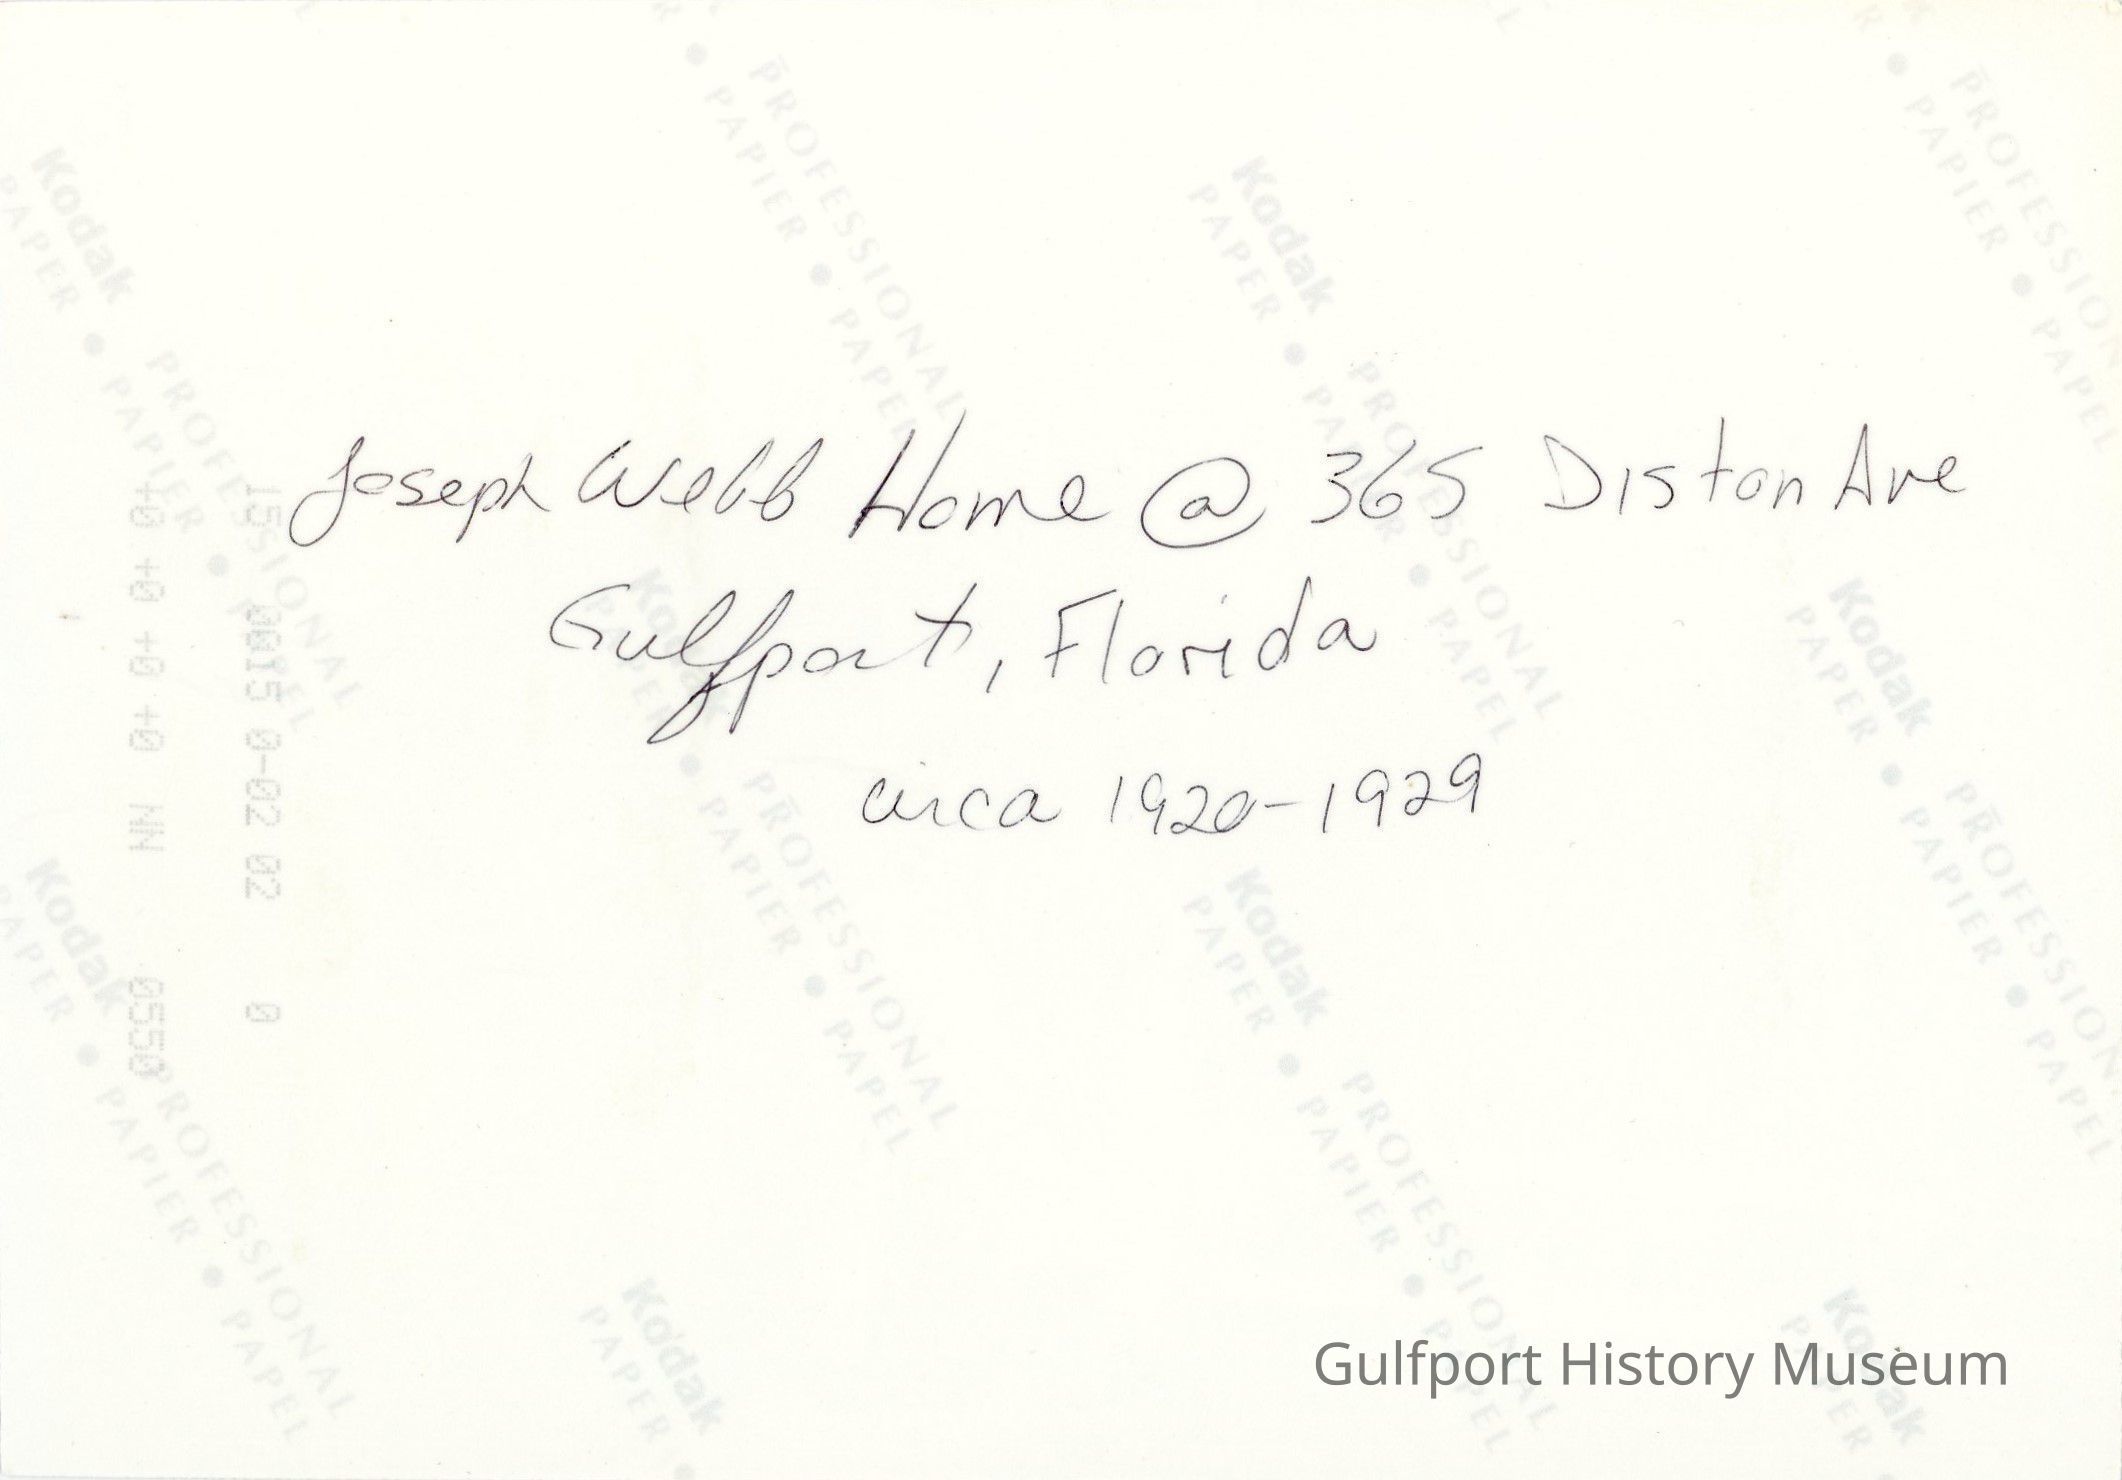 Joseph Webb Home @ 365 Diston Ave
Gulfport, Florida
circa 1920-1929
15 0015 0-02 02 0
+0 +0 +0 +0 NN 0550
Kodak
PROFESSIONAL
PAPER • PAPIER • PAPEL
Gulfport History Museum